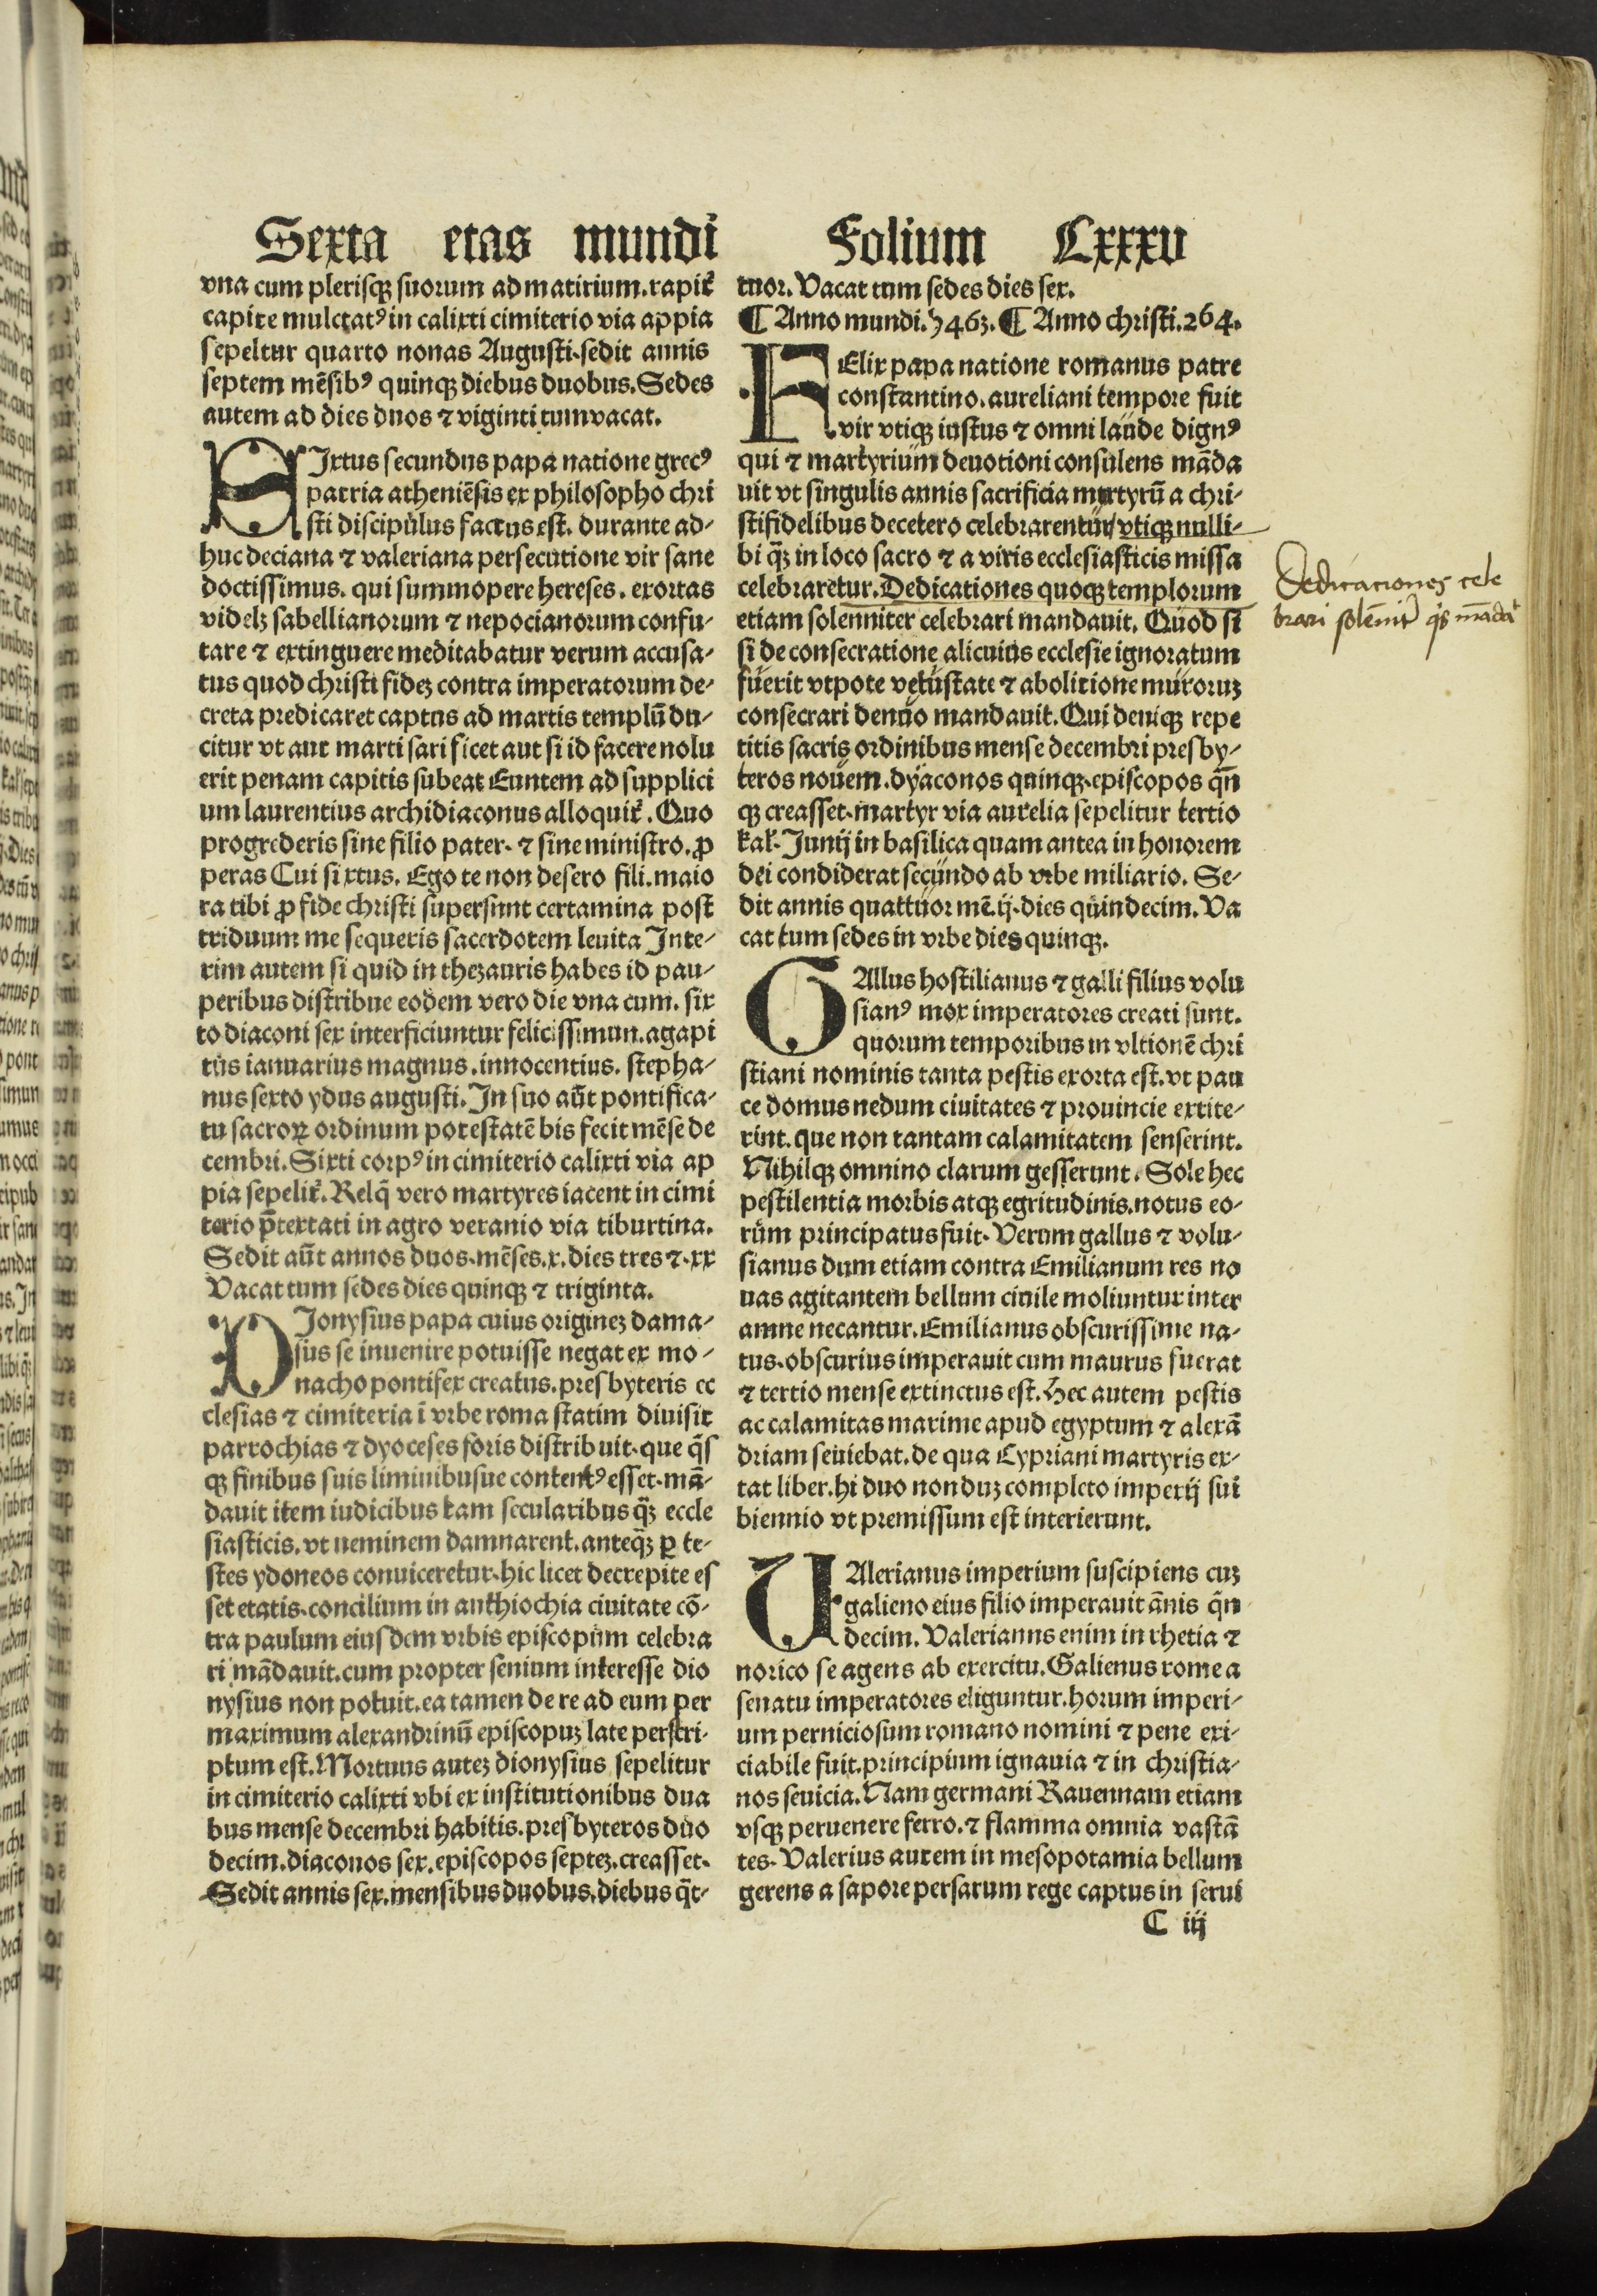 Sexta etas mundi
vna cum plerisqꝫ suorum ad matirium. rapit᷑
capite mulctatꝰ in calixti cimiterio via appia
sepeltur quarto nonas Augusti. sedit annis
septem mẽsibꝰ quinqꝫ diebus duobus. Sedes
autem ad dies duos ⁊ viginti tum vacat.
SIxtus secundus papa natione grecꝰ
patria atheniẽsis ex philosopho chri
sti discipulus factus est. durante ad-
huc deciana ⁊ valeriana persecutione vir sane
doctissimus. qui summopere hereses. exortas
videlꝫ sabellianorum ⁊ nepocianorum confu-
tare ⁊ extinguere meditabatur verum accusa-
tus quod christi fideꝫ contra imperatorum de-
creta predicaret captus ad martis templũ du-
citur vt aut marti sari ficet aut si id facere nolu
erit penam capitis subeat Euntem ad supplici
um laurentius archidiaconus alloquit᷑. Quo
progrederis sine filio pater. ⁊ sine ministro. ꝓ
peras Cui sixtus. Ego te non desero fili. maio
ra tibi ꝓ fide christi supersunt certamina post
triduum me sequeris sacerdotem leuita Inte-
rim autem si quid in theꝫauris habes id pau-
peribus distribue eodem vero die vna cum. six
to diaconi sex interficiuntur felicissimun. agapi
tus ianuarius magnus. innocentius. stepha-
nus sexto ydus augusti. In suo aũt pontifica-
tu sacroꝝ ordinum potestatẽ bis fecit mẽse de
cembri. Sixti corpꝰ in cimiterio calixti via ap
pia sepelit᷑. Relq̃ vero martyres iacent in cimi
terio p̃textati in agro veranio via tiburtina.
Sedit aũt annos duos. mẽses. x. dies tres ⁊. xx
Vacat tum sedes dies quinqꝫ ⁊ triginta.
DIonysius papa cuius origineꝫ dama-
sus se inuenire potuisse negat ex mo-
nacho pontifex creatus. presbyteris ec
clesias ⁊ cimiteria ĩ vrbe roma statim diuisit
parrochias ⁊ dyoceses foris distribuit. que q̃s
qꝫ finibus suis liminibusue contentꝰ esset. mã-
dauit item iudicibus tam secularibus q̃ꝫ eccle
siasticis. vt neminem damnarent. anteq̃ꝫ ꝑ te-
stes ydoneos conuiceretur. hic licet decrepite es
set etatis. concilium in anthiochia ciuitate cõ-
tra paulum eiusdem vrbis episcopum celebra
ri mãdauit. cum propter senium interesse dio
nysius non potuit. ea tamen de re ad eum per
maximum alexandrinũ episcopuꝫ late perscri-
ptum est. Mortuus auteꝫ dionysius sepelitur
in cimiterio calixti vbi ex institutionibus dua
bus mense decembri habitis. presbyteros duo
decim. diaconos sex. episcopos septeꝫ. creasset.
Sedit annis sex. mensibus duobus. diebus q̃t-
Folium Lxxxv
tuor. Vacat tum sedes dies sex.
¶ Anno mundi. 5463. ¶ Anno christi. 264.
FElix papa natione romanus patre
constantino. aureliani tempore fuit
vir vtiqꝫ iustus ⁊ omni laude dignꝰ
qui ⁊ martyrium deuotioni consulens mãda
uit vt singulis annis sacrificia martyrũ a chri-
stifidelibus decetero celebrarentur/ vtiqꝫ nulli-
bi q̃ꝫ in loco sacro ⁊ a viris ecclesiasticis missa
celebraretur. Dedicationes quoqꝫ templorum
etiam solenniter celebrari mandauit. Quod si
si de consecratione alicuius ecclesie ignoratum
fuerit vtpote vetustate ⁊ abolitione muroruꝫ
consecrari denuo mandauit. Qui deniqꝫ repe
titis sacris ordinibus mense decembri presby-
teros nouem. dyaconos quinqꝫ. episcopos q̃n
qꝫ creasset. martyr via aurelia sepelitur tertio
kal. Junij in basilica quam antea in honorem
dei condiderat secundo ab vrbe miliario. Se-
dit annis quattuor mẽ. ij. dies quindecim. Va
cat tum sedes in vrbe dies quinqꝫ.
GAllus hostilianus ⁊ galli filius volu
sianꝰ mox imperatores creati sunt.
quorum temporibus in vltionẽ chri
stiani nominis tanta pestis exorta est. vt pau
ce domus nedum ciuitates ⁊ prouincie extite-
rint. que non tantam calamitatem senserint.
Nihilqꝫ omnino clarum gesserunt. Sole hec
pestilentia morbis atqꝫ egritudinis. notus eo-
rum principatus fuit. Verum gallus ⁊ volu-
sianus dum etiam contra Emilianum res no
uas agitantem bellum ciuile moliuntur inter
amne necantur. Emilianus obscurissime na-
tus. obscurius imperauit cum maurus fuerat
⁊ tertio mense extinctus est. Hec autem pestis
ac calamitas maxime apud egyptum ⁊ alexã
driam seuiebat. de qua Cypriani martyris ex-
tat liber. hi duo non duꝫ completo imperij sui
biennio vt premissum est interierunt.
VAlerianus imperium suscipiens cuꝫ
galieno eius filio imperauit ãnis q̃n
decim. Valerianus enim in rhetia ⁊
norico se agens ab exercitu. Galienus rome a
senatu imperatores eliguntur. horum imperi-
um perniciosum romano nomini ⁊ pene exi-
ciabile fuit. principium ignauia ⁊ in christia-
nos seuicia. Nam germani Rauennam etiam
vsqꝫ peruenere ferro. ⁊ flamma omnia vastã
tes. Valerius autem in mesopotamia bellum
gerens a sapore persarum rege captus in serui
C iij
Dedicationes cele
brari solẽnit᷑ q̃s mãdat